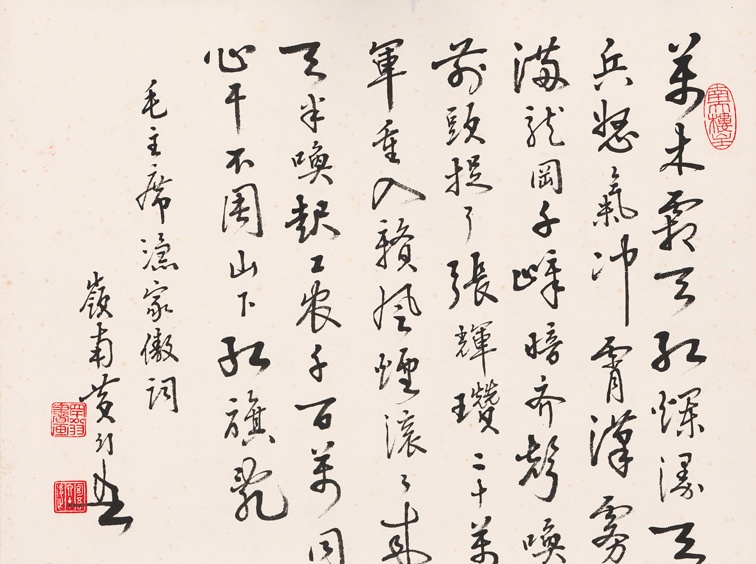 萬木霜天紅爛漫天
兵怒氣沖霄漢霧
滿龍岡千嶂暗齊聲喚
前頭捉了張輝瓚二十萬
軍重入贛風煙滾々來
天半喚起工農千百萬同
心干不周山下紅旗亂
毛主席漁家傲詞
嶺南黃幻吾